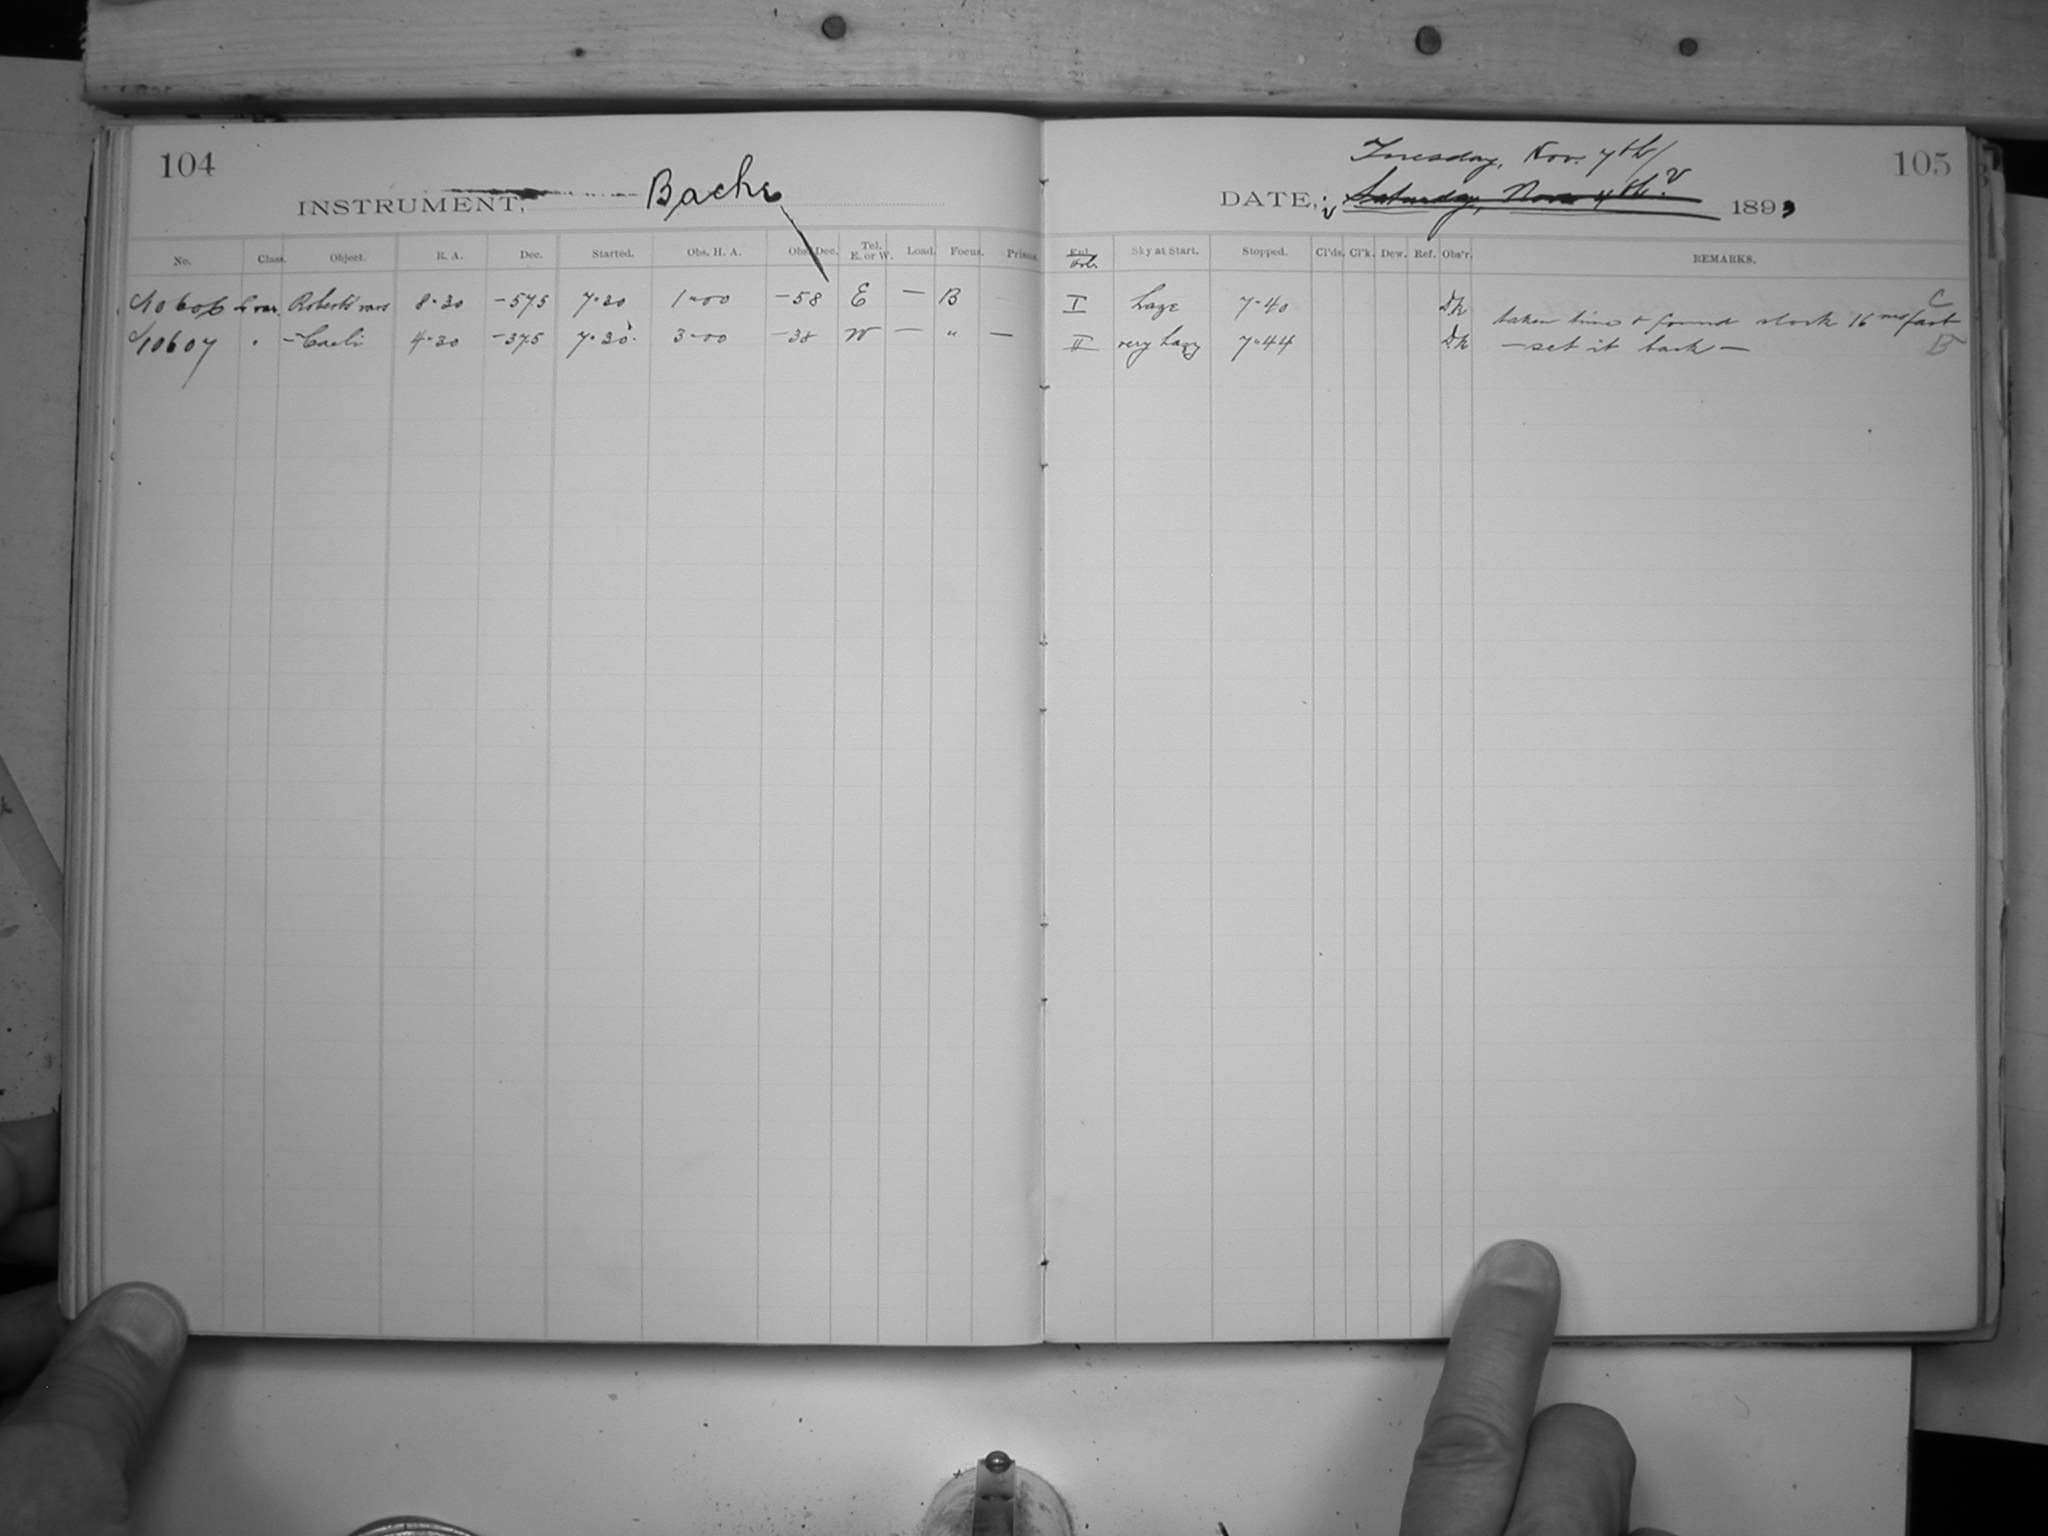 104
INSTRUMENT, Bache
No. Class. Object. R. A. Dec. Started. Obs. H. A. Obs. Dec. Tel. E. or W. Load. Focus. Prisms.
10606 var. Roberts' vars 8-30 -575 7-30 1-00 -58 E — B
10607 " -Caeli 4-30 -375 7-35 3-00 -38 W — " —
105
Tuesday, Nov. 7th/
DATE, Saturday, Nov. 4th. 1893
Sky at Start. Stopped. Cl'ds. Cl'k. Dew. Ref. Obs'r. REMARKS.
I haze 7-40 Dk taken time & found clock 16 ms fast C
II very hazy 7-44 Dk — set it back — B